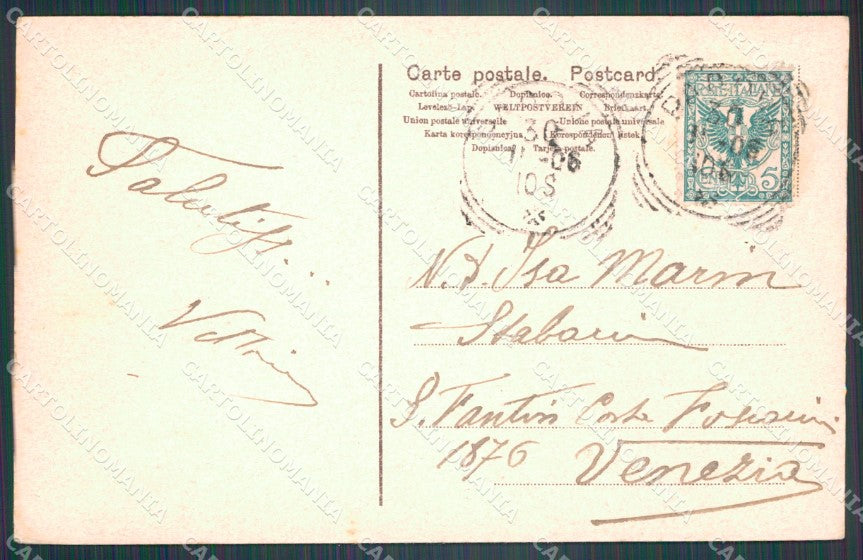 Carte postale. Postcard.
Cartolina postale. Dopisnice. Correspondenzkarte
Levelező-Lap. WELTPOSTVEREIN Briefkaart
Union postale universelle Unione postale universale
Karta korespondencyjna Korespondenční lístek.
Dopisnica Tarjeta postale.
POSTE ITALIANE
5
30
11-06
10S
30
11-06
10S
Salutissi...
Vittorio
N. D. Isa Marin
S. Fantin Corte Foscarini
1876 Venezia
CARTOLINOMANIA